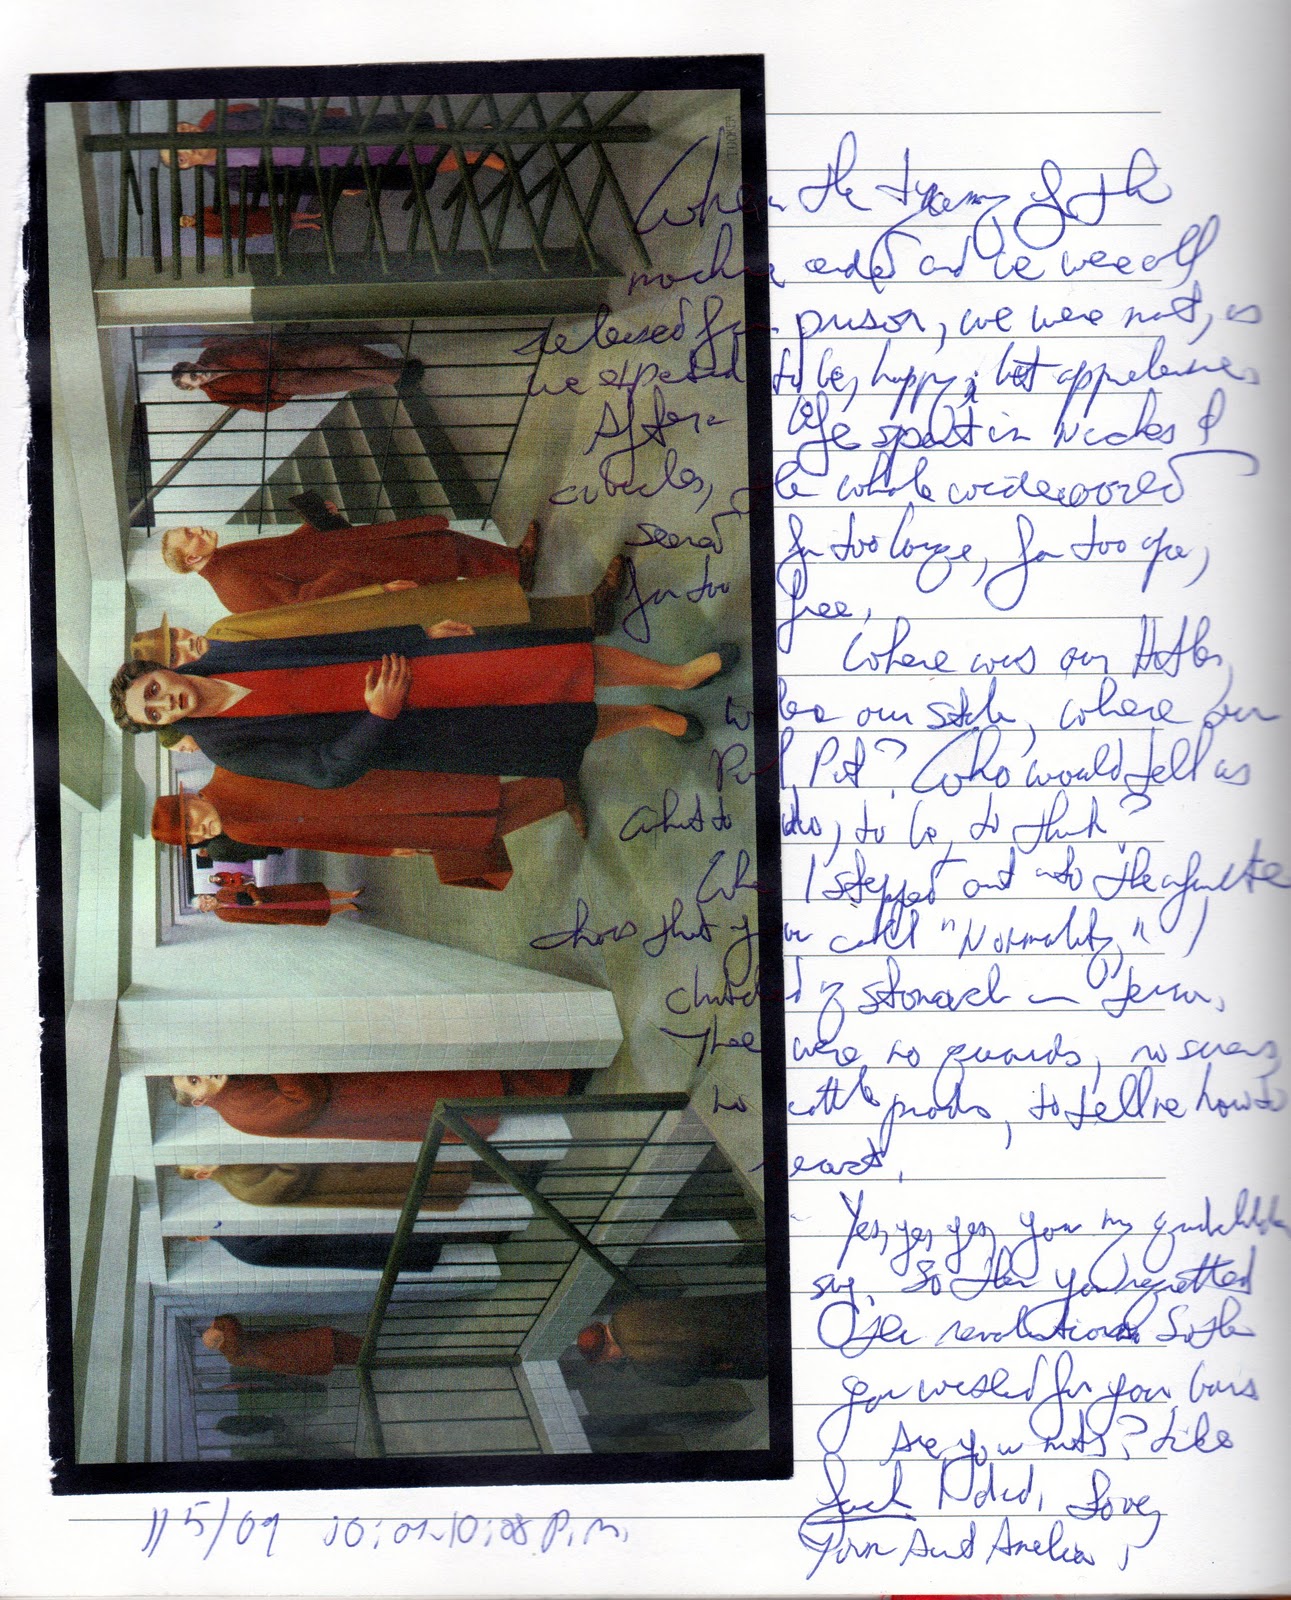 TOOKER
When the tyranny of the
machine ended and we were all
released from prison, we were not, as
we expected to be, happy, but apprehensive.
After a life spent in niches &
cubicles, the whole wide world
seemed far too large, far too
far too free.
Where was our Hitler,
where our Stalin, where our
Pol Pot? Who would tell us
what to do, to be, to think?
When I stepped out into the
chaos that you call "Normality," I
clutched my stomach in terror.
There were no guards, no screws,
no cattle prods, to tell me how to
react.
Yes, yes, yes, you my grandchildren
say. So then you regretted
the revolution. So then
you wished for your bars
Are you nuts? Like
fuck I did. Love,
Your Aunt Amelia.
1/5/09 10:01-10:08 P.M.